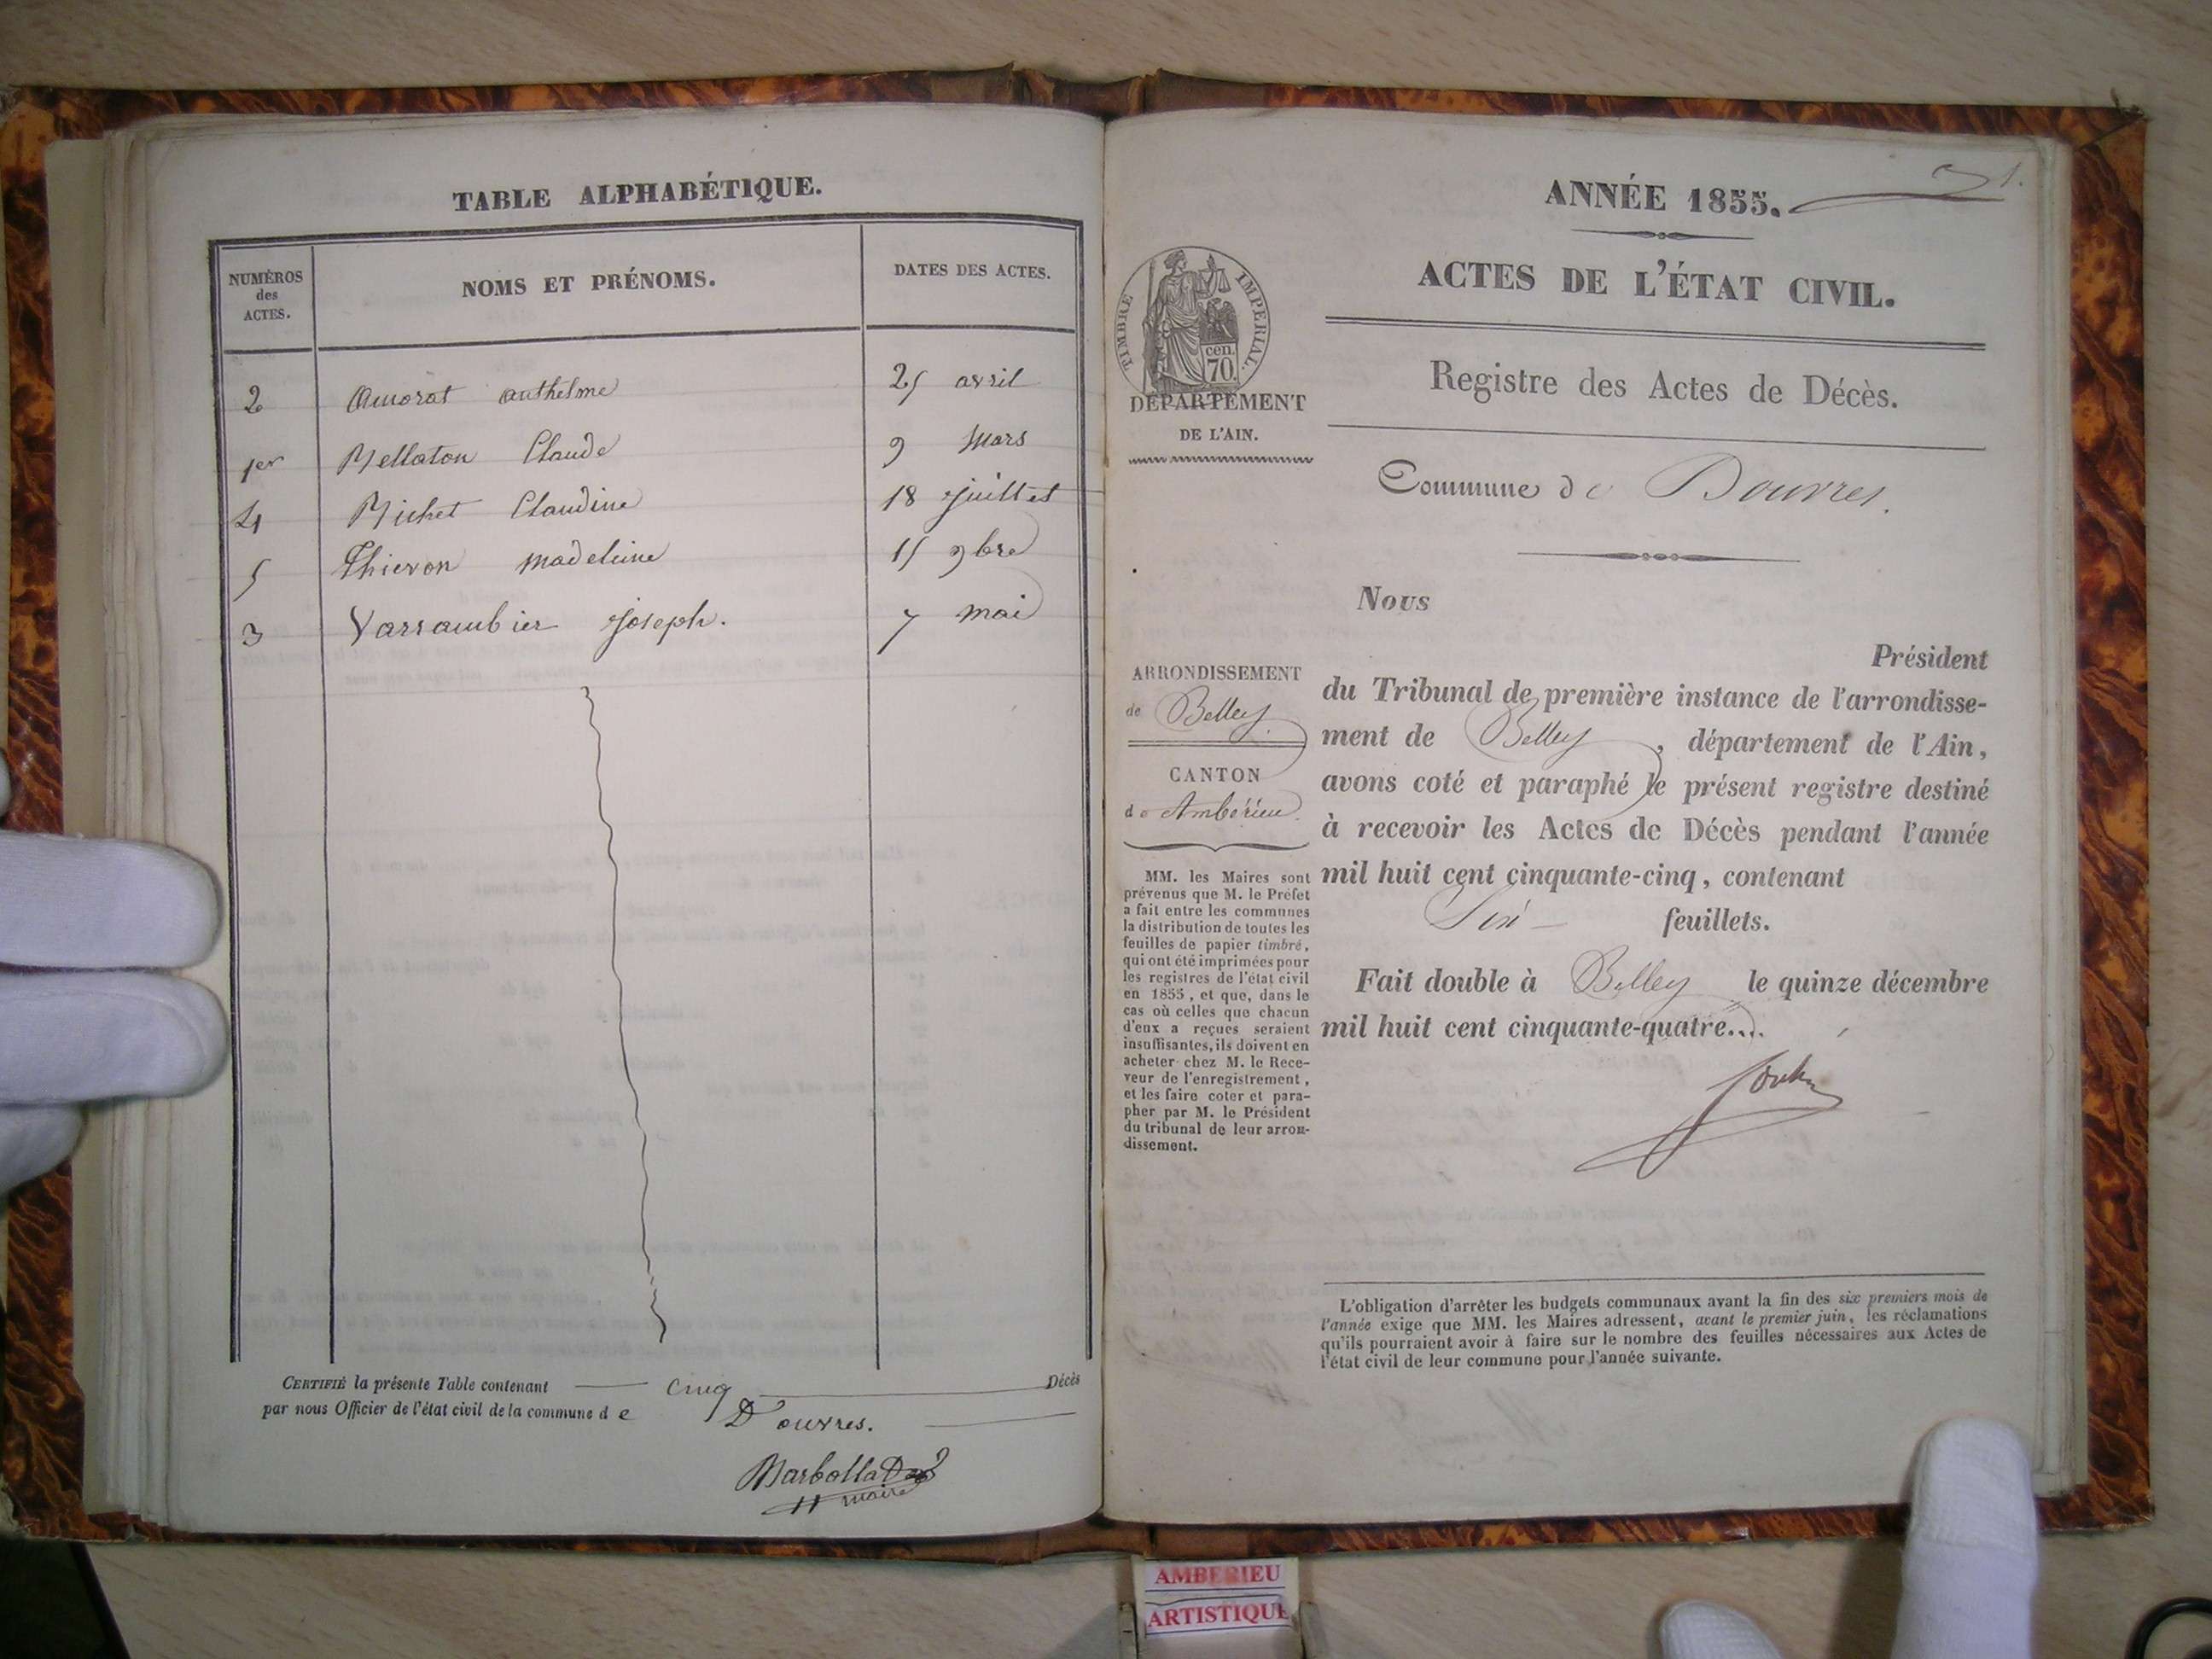 TABLE ALPHABÉTIQUE.
NUMÉROS des ACTES.
NOMS ET PRÉNOMS.
DATES DES ACTES.
2 Amorat anthelme 25 avril
1er Mellaton Claude 9 Mars
4 Michet Claudine 18 juillet
5 Thievon Madeleine 15 9bre
3 Varrambier joseph. 7 mai
CERTIFIÉ la présente Table contenant cinq Décès
par nous Officier de l'état civil de la commune de Douvres.
maire
1.
ANNÉE 1855.
ACTES DE L'ÉTAT CIVIL.
Registre des Actes de Décès.
TIMBRE IMPERIAL.
cen.
70.
DÉPARTEMENT
DE L'AIN.
Commune de Douvres.
Nous
Président
du Tribunal de première instance de l'arrondisse-
ment de Belley, département de l'Ain,
avons coté et paraphé le présent registre destiné
à recevoir les Actes de Décès pendant l'année
mil huit cent cinquante-cinq, contenant
Six feuillets.
Fait double à Belley le quinze décembre
mil huit cent cinquante-quatre...
ARRONDISSEMENT
de Belley.
CANTON
de Ambérieu.
MM. les Maires sont
prévenus que M. le Préfet
a fait entre les communes
la distribution de toutes les
feuilles de papier timbré,
qui ont été imprimées pour
les registres de l'état civil
en 1855, et que, dans le
cas où celles que chacun
d'eux a reçues seraient
insuffisantes, ils doivent en
acheter chez M. le Rece-
veur de l'enregistrement,
et les faire coter et para-
pher par M. le Président
du tribunal de leur arron-
dissement.
L'obligation d'arrêter les budgets communaux avant la fin des six premiers mois de
l'année exige que MM. les Maires adressent, avant le premier juin, les réclamations
qu'ils pourraient avoir à faire sur le nombre des feuilles nécessaires aux Actes de
l'état civil de leur commune pour l'année suivante.
AMBERIEU
ARTISTIQUE